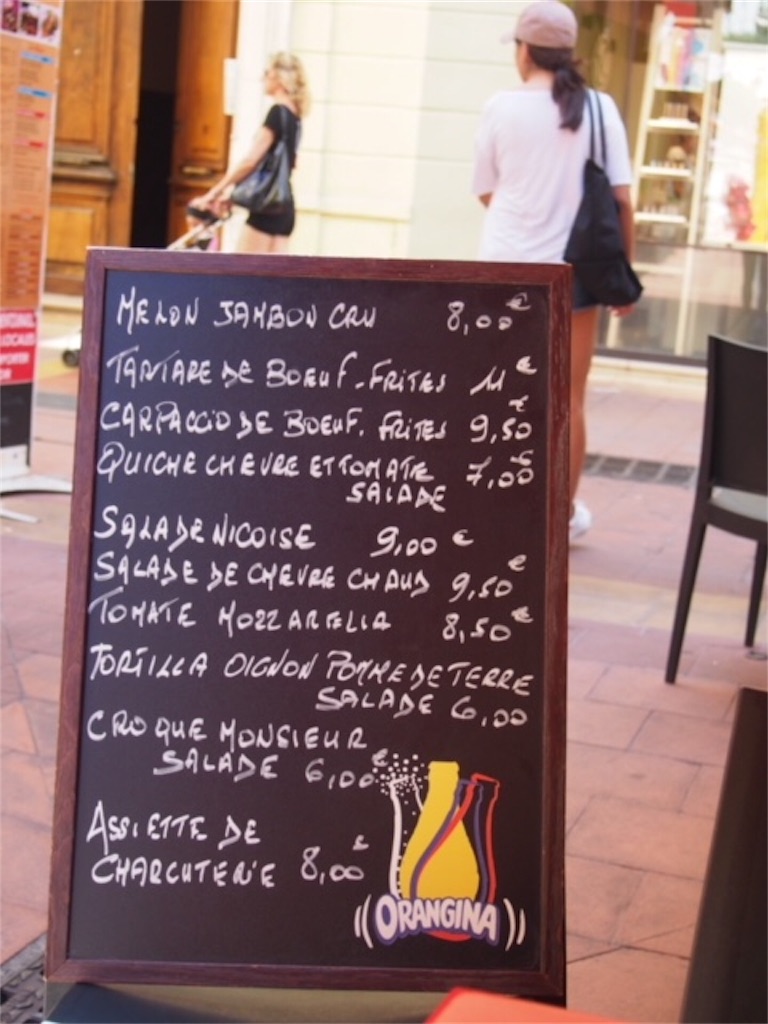 MELON JAMBON CRU 8,00 €
TARTARE DE BOEUF - FRITES 11 €
CARPACCIO DE BOEUF. FRITES 9,50 €
QUICHE CHEVRE ET TOMATE 7,00 €
SALADE
SALADE NICOISE 9,00 €
SALADE DE CHEVRE CHAUD 9,50 €
TOMATE MOZZARELLA 8,50 €
TORTILLA OIGNON POMME DE TERRE
SALADE 6,00
CROQUE MONSIEUR
SALADE 6,00 €
ASSIETTE DE
CHARCUTERIE 8,00 €
ORANGINA
LOCALES